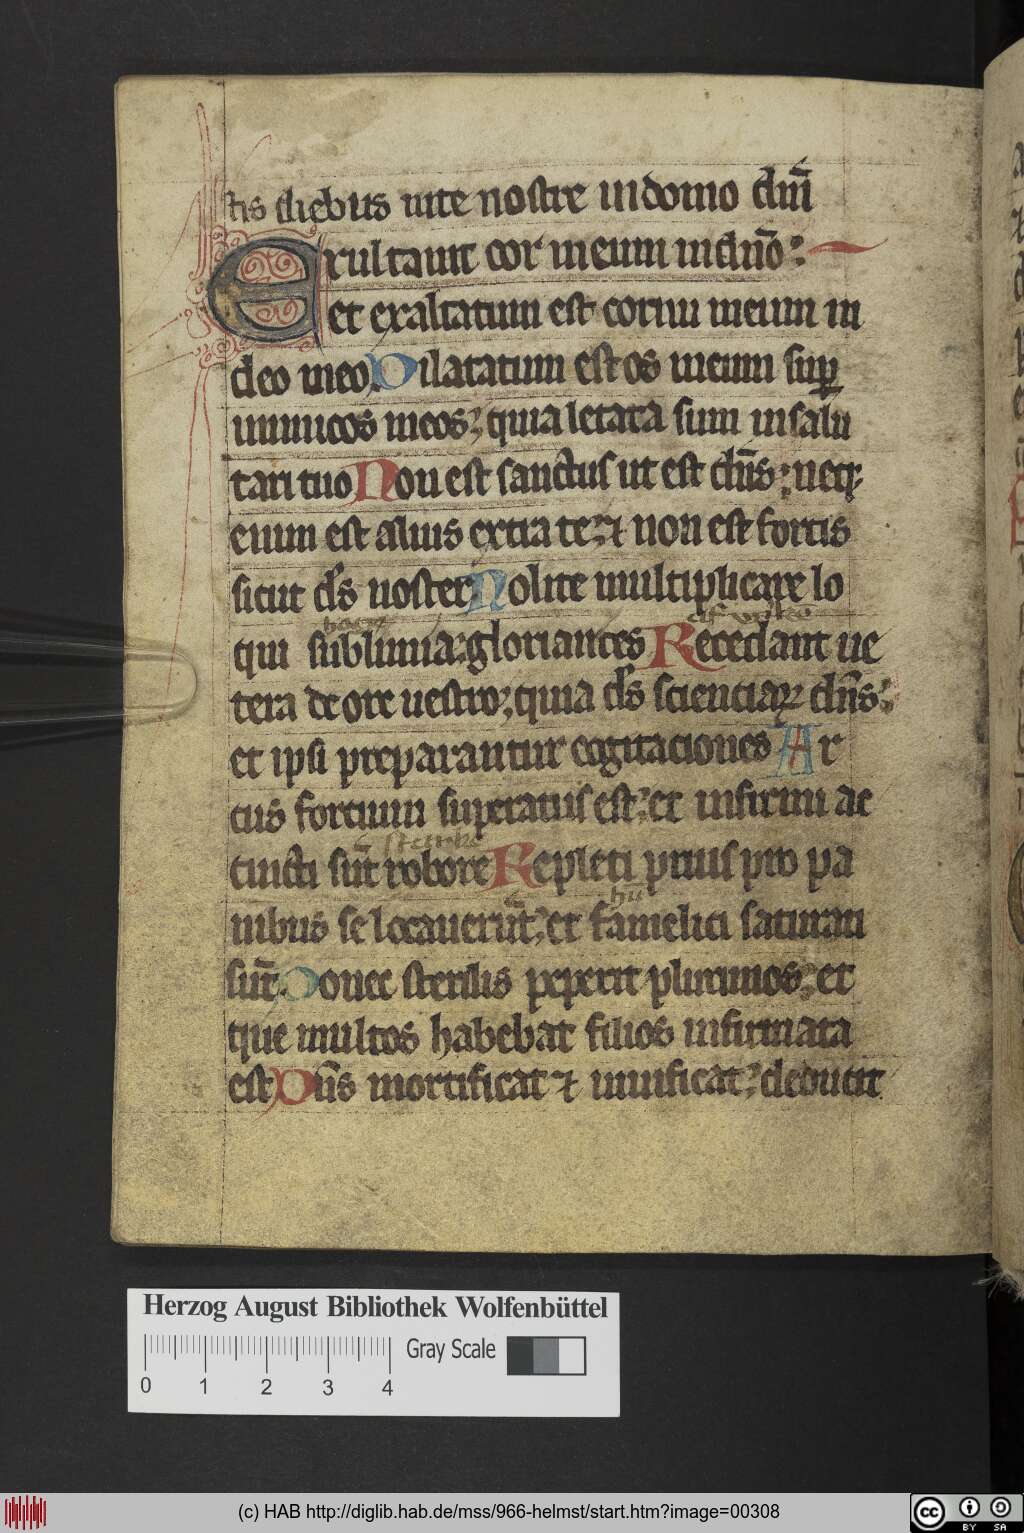 ctis diebus uite nostre in domo dm̄i
Exultauit cor meum in dn̄o:
et exaltatum est cornu meum in
deo meo. Dilatatum est os meum suꝑ
inimicos meos; quia letata sum in salu
tari tuo Non est sanctus ut est dn̄s: neqꝫ
enim est alius extra te; ⁊ non est fortis
sicut ds̄ noster Nolite multiplicare lo
qui sublimia; gloriantes Recedant ue
tera de ore uestro; quia ds̄ scienciaꝝ dn̄s:
et ipsi preparantur cogitationes Ar
cus fortium superatus est; et infirmi ac
cincti sūt robore Repleti prius pro pa
nibus se locauerūt; et famelici saturati
sūt. Donec sterilis peperit plurimos; et
que multos habebat filios infirmata
est Dn̄s mortificat ⁊ uiuificat; deducit
Herzog August Bibliothek Wolfenbüttel
Gray Scale
0 1 2 3 4
(c) HAB http://diglib.hab.de/mss/966-helmst/start.htm?image=00308
cc BY SA